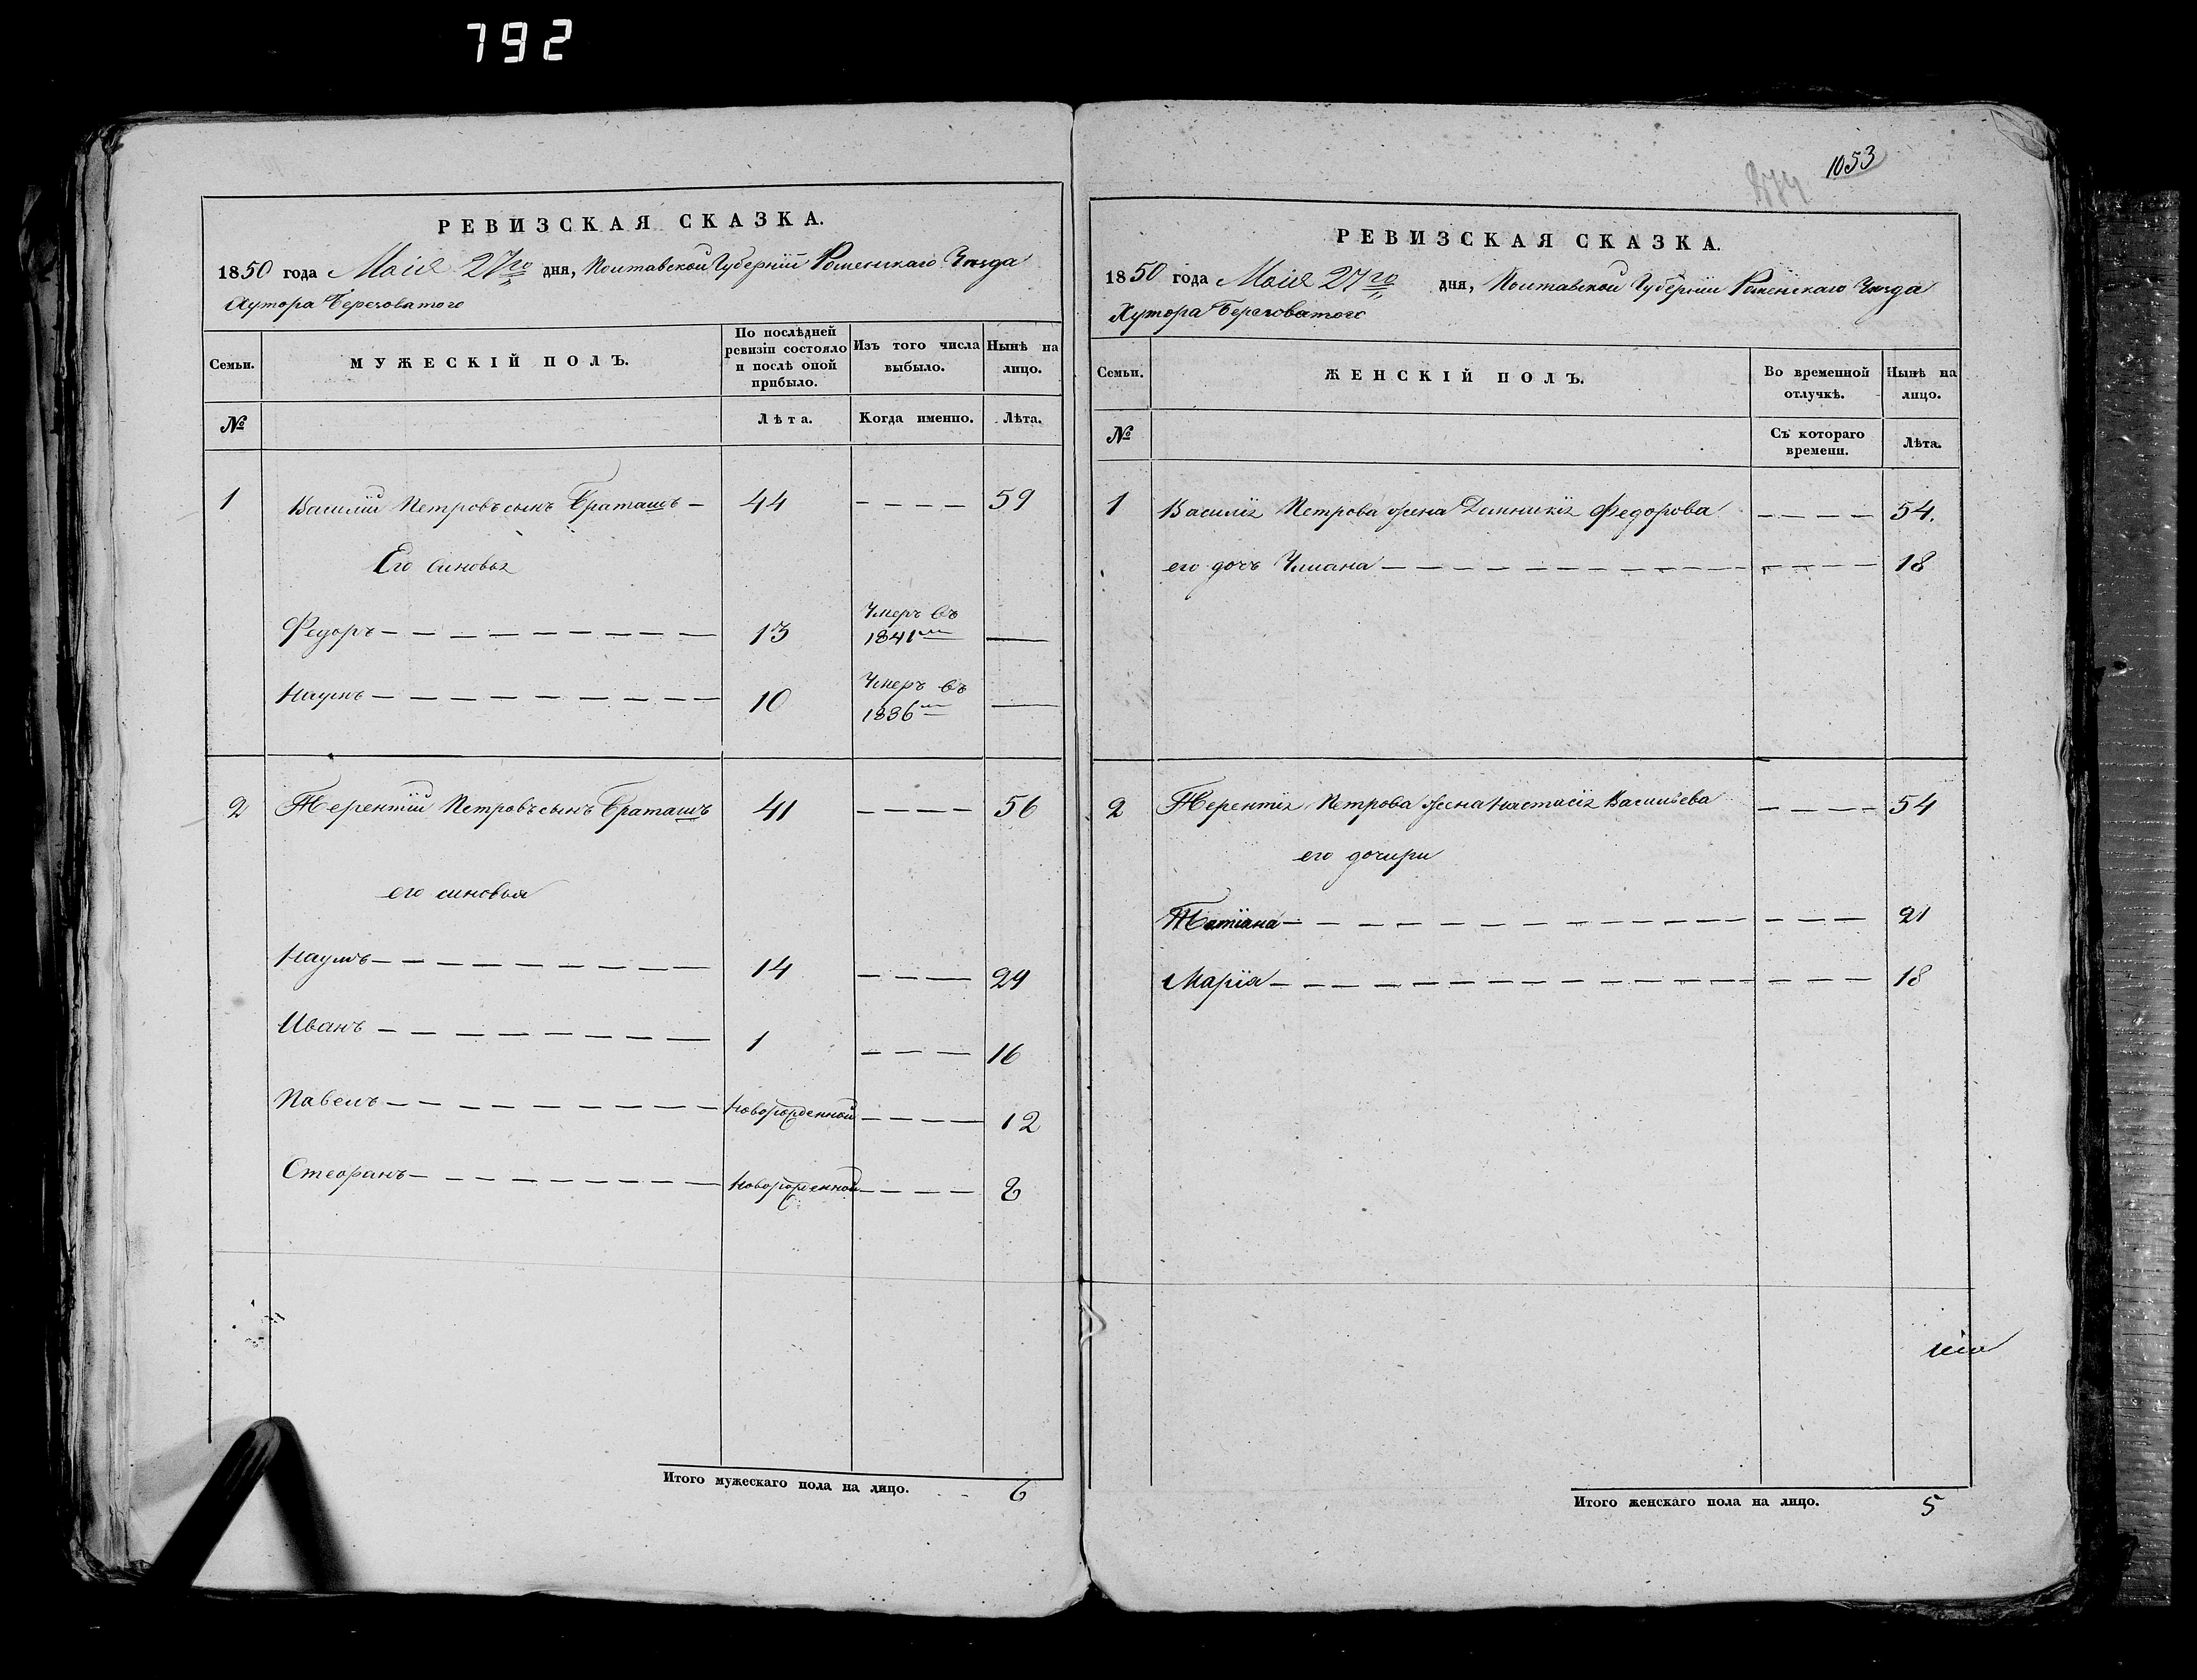 792
РЕВИЗСКАЯ СКАЗКА.
1850 года Маія 27го дня, Полтавской Губерніи Роменскаго Уезда
Хутора Береговатого
Семьи.
МУЖЕСКІЙ ПОЛЪ.
По послѣдней ревизіи состояло и послѣ оной прибыло.
Изъ того числа выбыло.
Нынѣ на лицо.
№
Лѣта.
Когда именно.
Лѣта.
1 Василій Петровъ сынъ Браташъ — 44 — — — — 59
Его синовья
Федоръ — — — 13 Умеръ въ 1841м —
Наумъ — — — 10 Умеръ въ 1836м —
2 Терентій Петровъ сынъ Браташъ 41 — — — — 56
его синовья
Наумъ — — — 14 — — — 29
Иванъ — — — 1 — — — — 16
Павелъ — — — Новорожденной — — — — 12
Стефанъ — — — Новорожденной — — — — 8
Итого мужескаго пола на лицо. 6
1053
РЕВИЗСКАЯ СКАЗКА.
1850 года Маія 27го дня, Полтавской Губерніи Роменскаго Уезда
Хутора Береговатого
Семьи.
ЖЕНСКІЙ ПОЛЪ.
Во временной отлучкѣ.
Нынѣ на лицо.
№
Съ котораго времени.
Лѣта.
1 Василія Петрова жена Домникія Федорова — — — — 54.
его дочъ Улиана — — — — 18
2 Терентія Петрова жена Настасія Васильева — — — — 54
его дочири
Татіана — — — — 21
Марія — — — — 18
Итого женскаго пола на лицо. 5